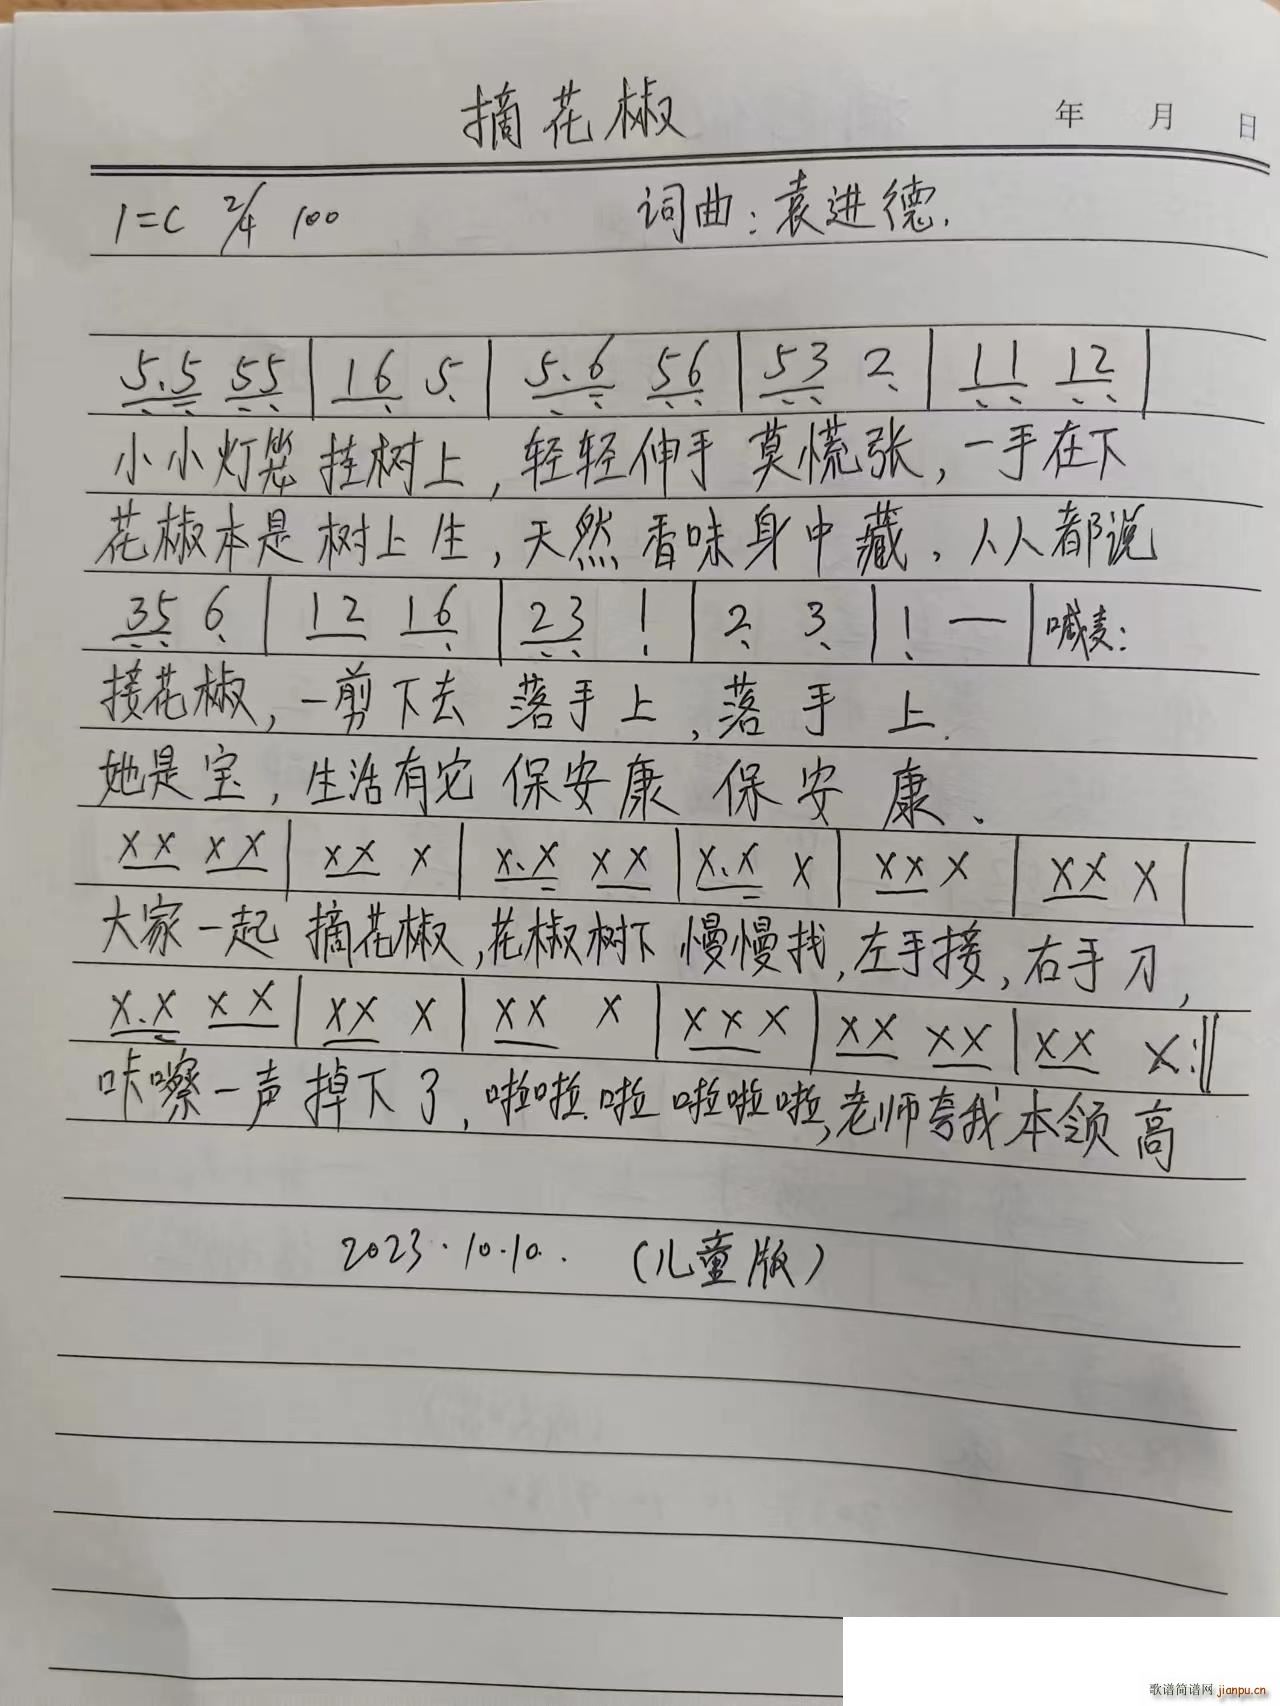 摘花椒
年 月 日
1=C 2/4 100 词曲：袁进德.
5.5 55 | 16 5 | 5.6 56 | 53 2 | 11 12 |
小小灯笼 挂树上，轻轻伸手 莫慌张，一手在下
花椒本是 树上生，天然香味身中藏，人人都说
35 6 | 12 16 | 23 1 | 2 3 | 1 — | 喊麦：
接花椒，一剪下去 落手上，落 手 上.
她是宝，生活有它 保安康 保 安 康、
XX XX | XX X | X.X XX | X.X X | XX X | XX X |
大家一起 摘花椒，花椒树下 慢慢找，左手接，右手刀，
X.X XX | XX X | XX X | XXX | XX XX | XX X :||
咔嚓一声 掉下了，啦啦.啦 啦啦啦，老师夸我 本领高
2023.10.10. （儿童版）
歌谱简谱网 jianpu.cn